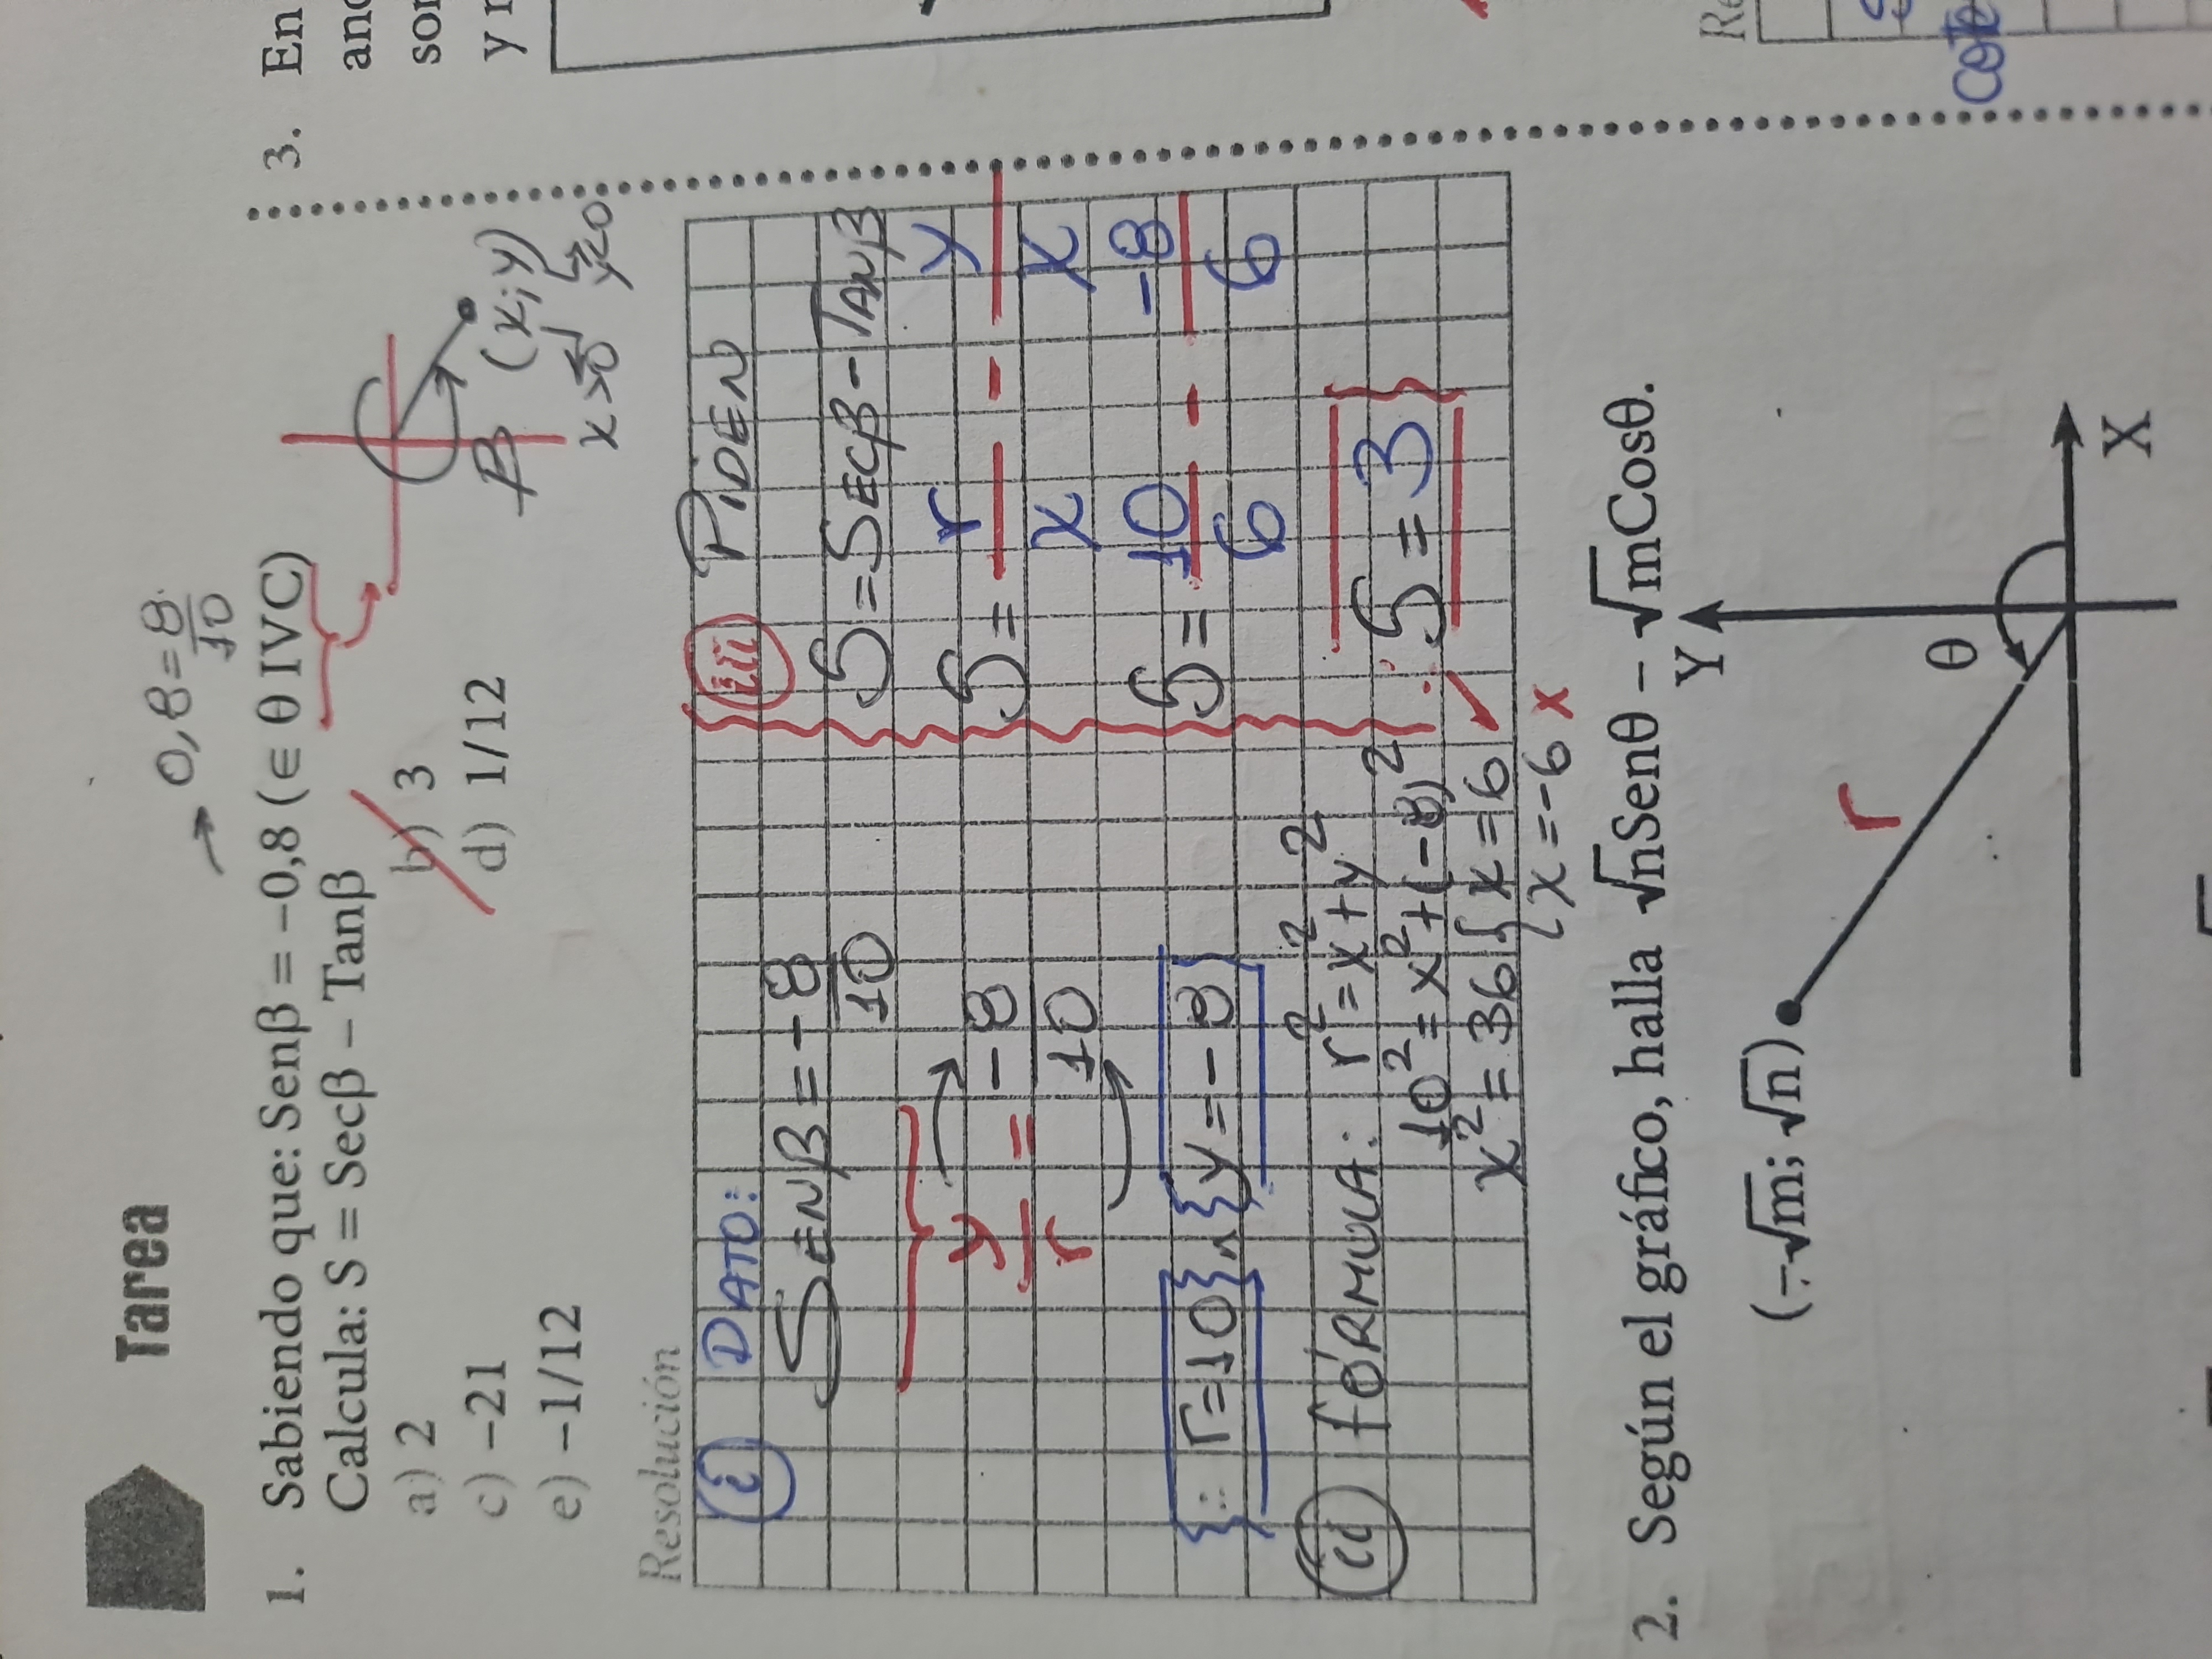 Tarea
→ 0,8 = 8/10
1. Sabiendo que: Senβ = –0,8 (∈ θ IVC)
Calcula: S = Secβ – Tanβ
a) 2
b) 3
c) –21
d) 1/12
e) –1/12
β (x; y)
x>0 y<0
3. En
son
y
Resolución
i DATO:
SENβ = -8/10
y/r = -8/10
∴ r=10 ∧ y=-8
ii FÓRMULA: r²=x²+y²
10²=x²+(-8)²
x²=36 { x=6 ✓
x=-6 x
iii PIDEN
S=SECβ-TANβ
S= r/x - y/x
S= 10/6 - -8/6
∴ S=3
2. Según el gráfico, halla √nSenθ – √mCosθ.
Y
(–√m; √n)
r
θ
X